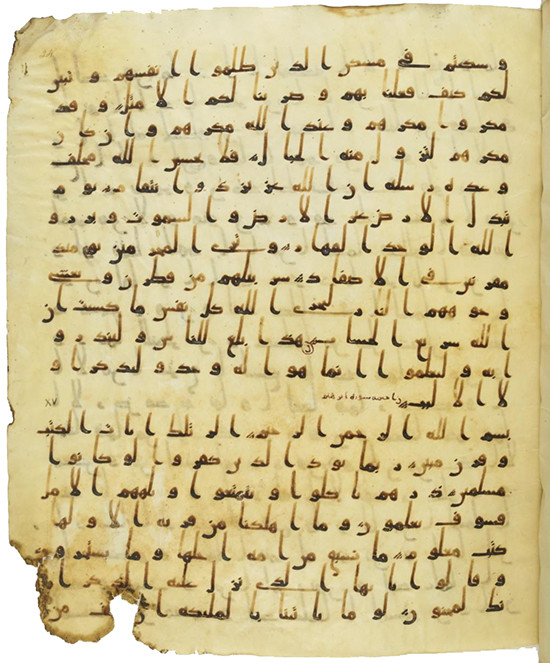 و سكنتم في مسكن الذين ظلموا انفسهم و تبين
لكم كيف فعلنا بهم و ضربنا لكم الامثل و قد
مكروا مكرهم و عند الله مكرهم و ان كان
مكرهم لتزول منه الجبال فلا تحسبن الله مخلف
وعده رسله ان الله عزيز ذو انتقام يوم
تبدل الارض غير الارض و السموت و برزو
ا لله الوحد القهار و ترى المجرمين يومئذ
مقرنين في الاصفاد سرابيلهم من قطران و تغشى
وجوههم النار ليجزي الله كل نفس ما كسبت ان
الله سريع الحساب هذا بلغ للناس و لينذرو
ا به و ليعلموا انما هو اله وحد و ليذكر ا و
لوا الالبب
XV
بسم الله الرحمن الرحيم الر تلك ايت الكتب
و قرن مبين ربما يود الذين كفروا لو كانوا
مسلمين ذرهم ياكلوا و يتمتعوا و يلههم الامل
فسوف يعلمون و ما اهلكنا من قرية الا و لها
كتب معلوم ما تسبق من امة اجلها و ما يستخرون
و قالوا يايها الذي نزل عليه الذكر ا
نك لمجنون لو ما تاتينا بالمليكة ان كنت من